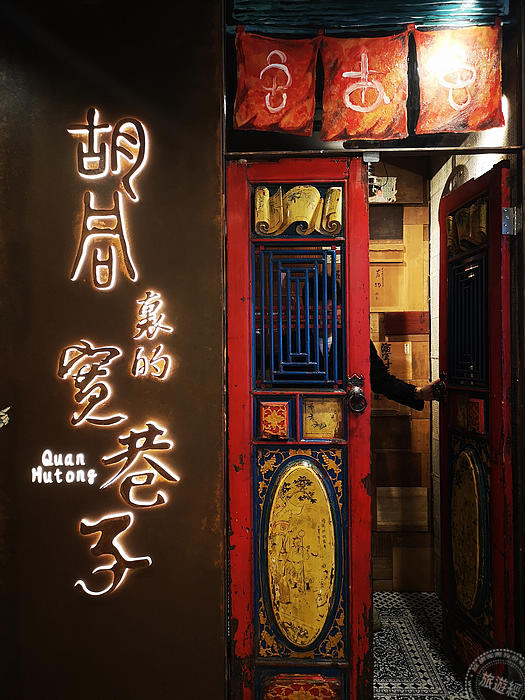 胡同
裏的
寬巷子
Quan
Hutong
旅遊經